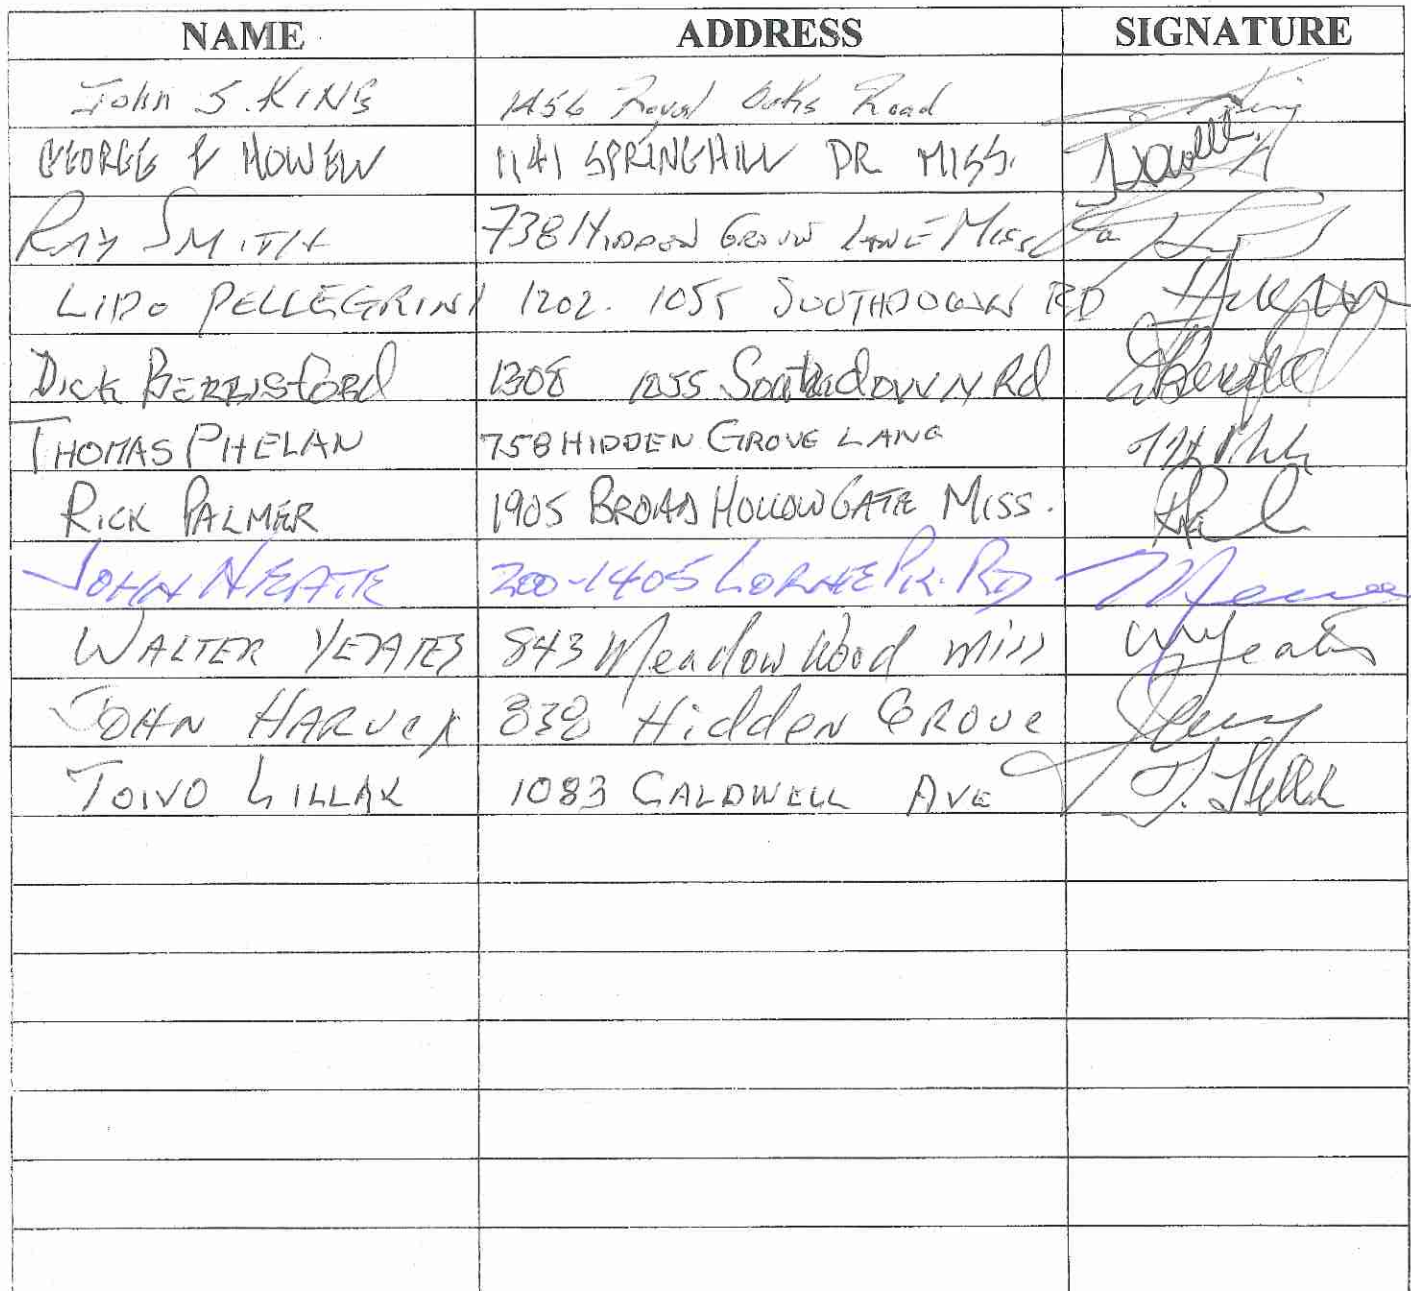 NAME ADDRESS SIGNATURE
John S. KING 1456 Royal Oaks Road
GEORGE HOWELL 1141 SPRINGHILL DR MISS.
RAY SMITH 738 HIDDEN GROVE LANE MISS
LIDO PELLEGRINI 1202. 1055 SOUTHDOWN RD
DICK BERRISFORD 1308 1055 Southdown Rd
THOMAS PHELAN 758 HIDDEN GROVE LANE
RICK PALMER 1905 BROAD HOLLOW GATE MISS.
JOHN NEATE 200-1405 LORNE PK. RD
WALTER YEATES 843 Meadow Wood Miss WYeates
JOHN 838 Hidden GROVE
TOIVO 1083 CALDWELL AVE